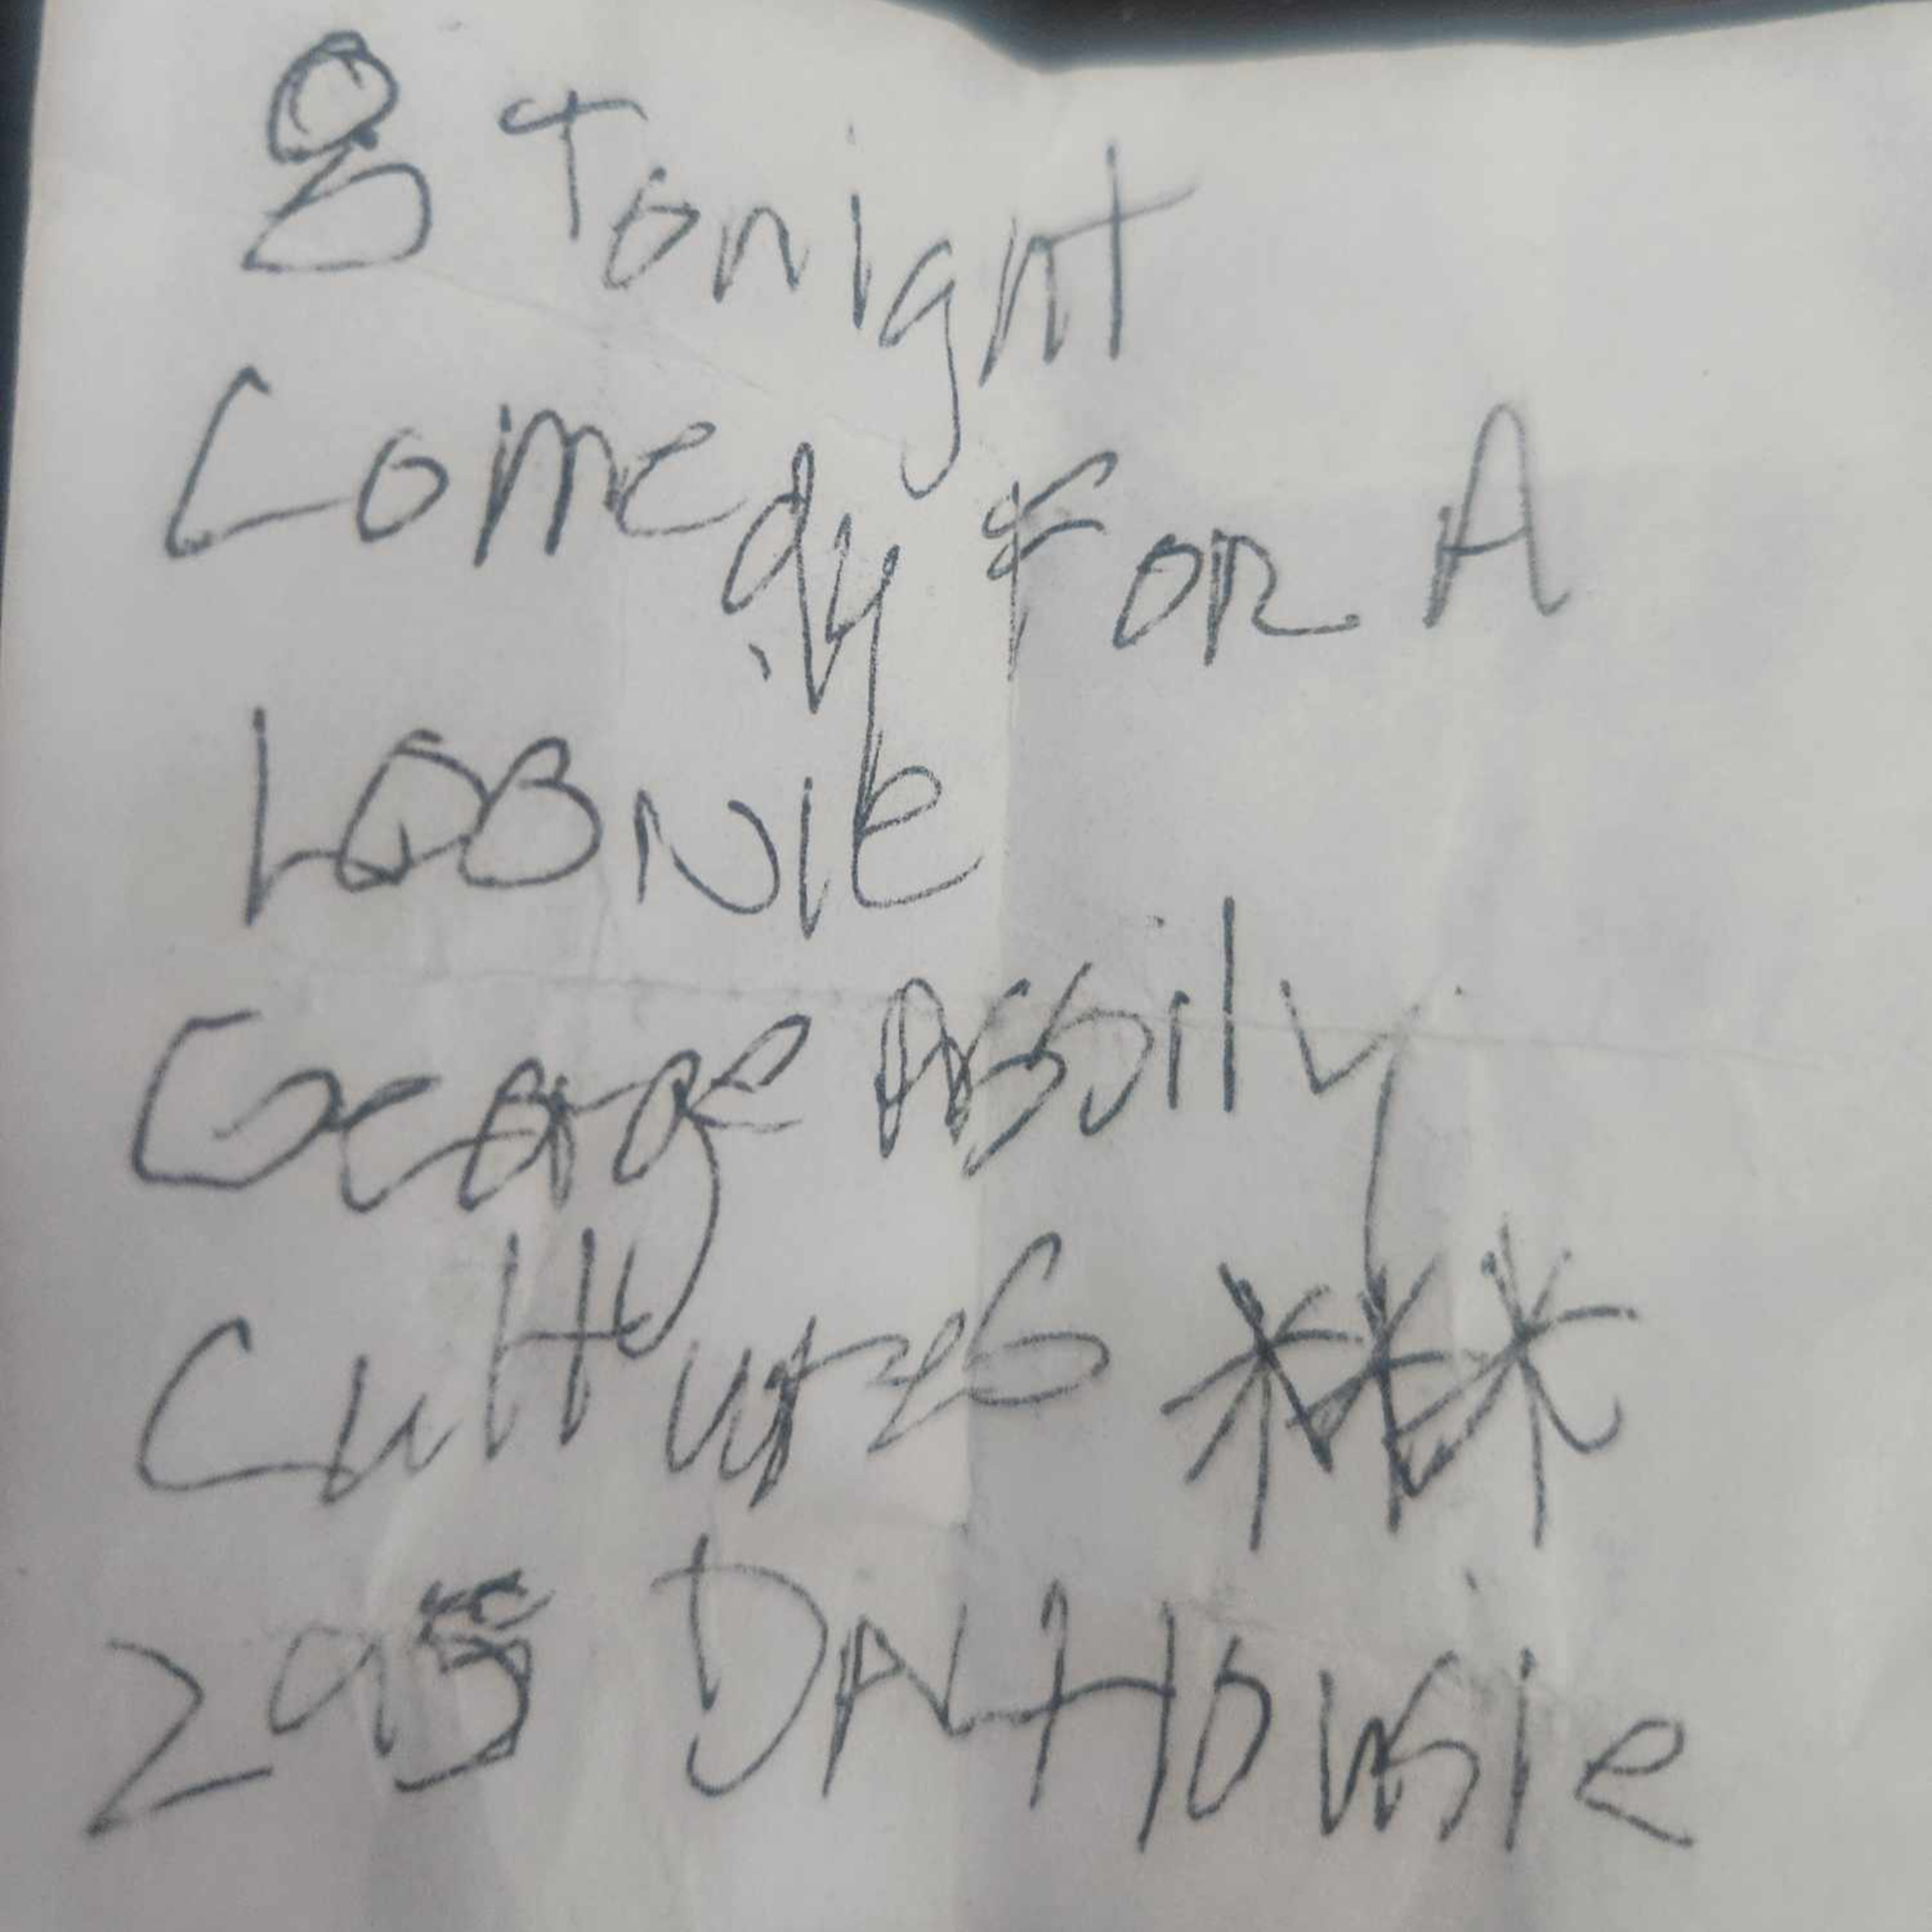 8 Tonight
Comedy For A
LOONIE
George Assily
Cultures ***
295 DALHousie